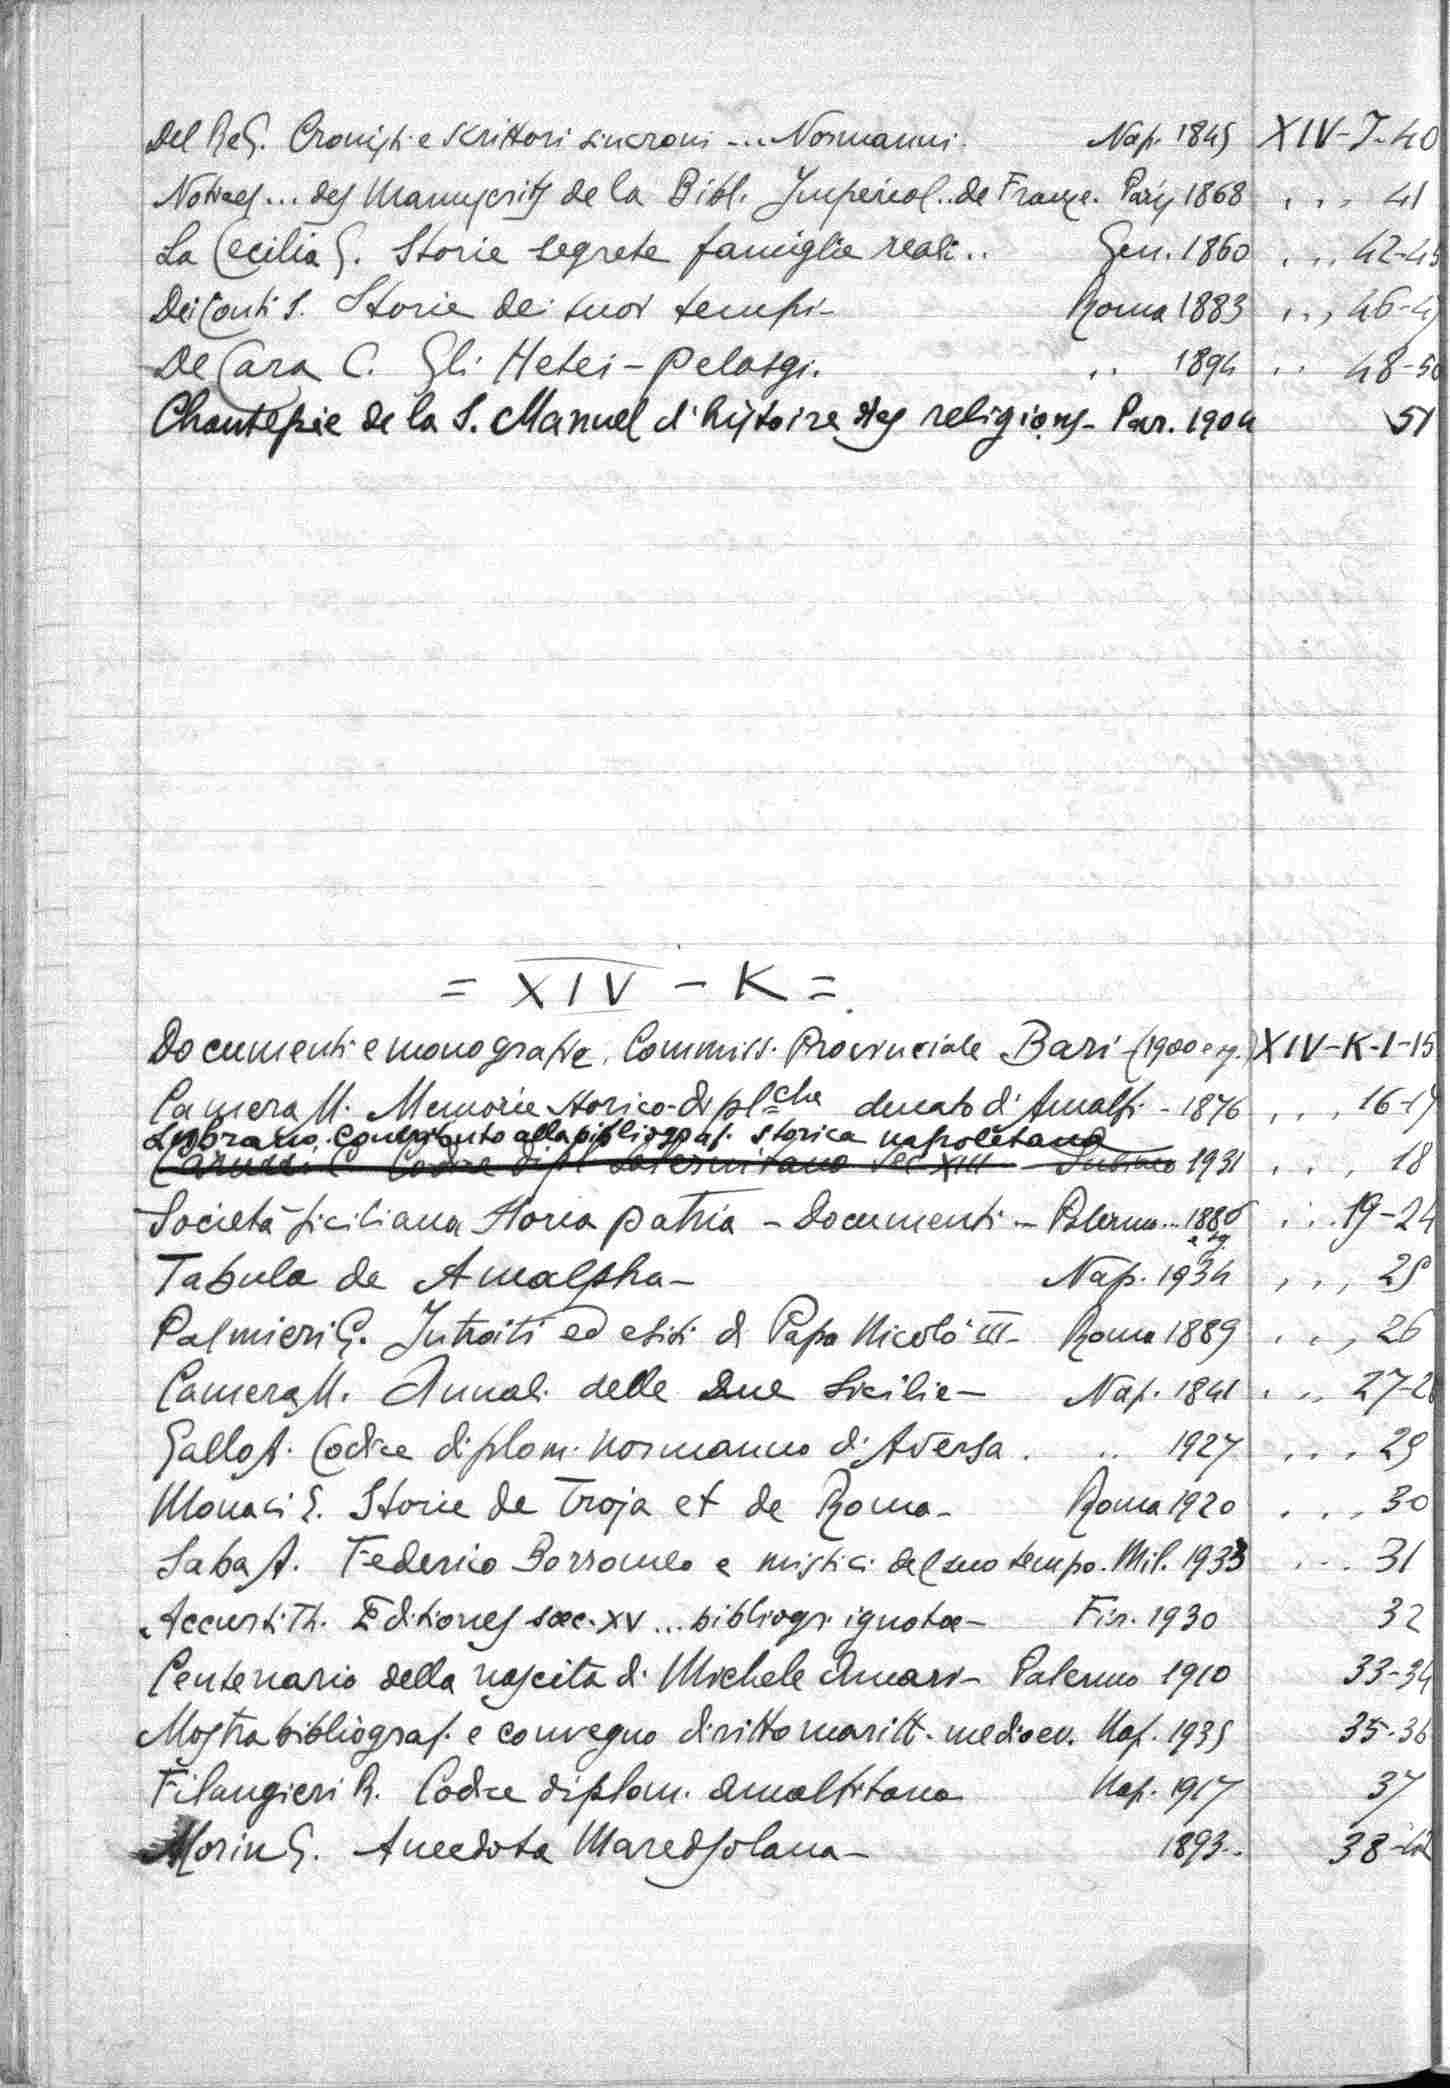 Del Re G. Cronisti e scrittori sincroni ... Normanni. Nap. 1845 XIV-J-40
Notices... des Manuscrits de la Bibl. Impérial.. de France. Paris 1868 ,,, 41
La Cecilia G. Storie segrete famiglie reali.. Gen. 1860 ,,, 42-45
Dei Conti S. Storie dei suoi tempi- Roma 1883 ,,, 46-47
De Cara C. Gli Hetei-Pelasgi. ,, 1894 ,, 48-50
Chantepie de la S. Manuel d'histoire des religions- Par. 1904 51
= XIV - K =
Documenti e monografie. Commiss. Provinciale Bari (1900 e sg.) XIV-K-1-15
Camera M. Memorie storico-dipl=che ducato d'Amalfi - 1876 ,,, 16-17
Contributo alla bibliograf. storica napoletana
Carucci C. Codice dipl Salernitano Sec XIII - Subiaco 1931 ,,, 18
Società siciliana Storia patria - Documenti - Palermo... 1886 e sg. ,,, 19-24
Tabula de Amalpha- Nap. 1934 ,,, 25
Palmieri G. Introiti ed esiti di Papa Nicolò III- Roma 1889 ,,, 26
Camera M. Annali delle Due Sicilie- Nap. 1841 ,,, 27-28
Gallo A. Codice diplom. normanno di Aversa. ,, 1927 ,,, 29
Monaci E. Storie de Troja et de Roma- Roma 1920 ,,, 30
Saba A. Federico Borromeo e mistici del suo tempo. Mil. 1933 ... 31
Accurti Th. Editiones saec. XV... bibliogr. ignotae- Fir. 1930 32
Centenario della nascita di Michele Amari- Palermo 1910 33-34
Mostra bibliograf. e convegno diritto maritt. medioev. Nap. 1935 35-36
Filangieri R. Codice diplom. amalfitano Nap. 1917 37
Morin G. Anecdota Maredsolana- 1893.. 38-42